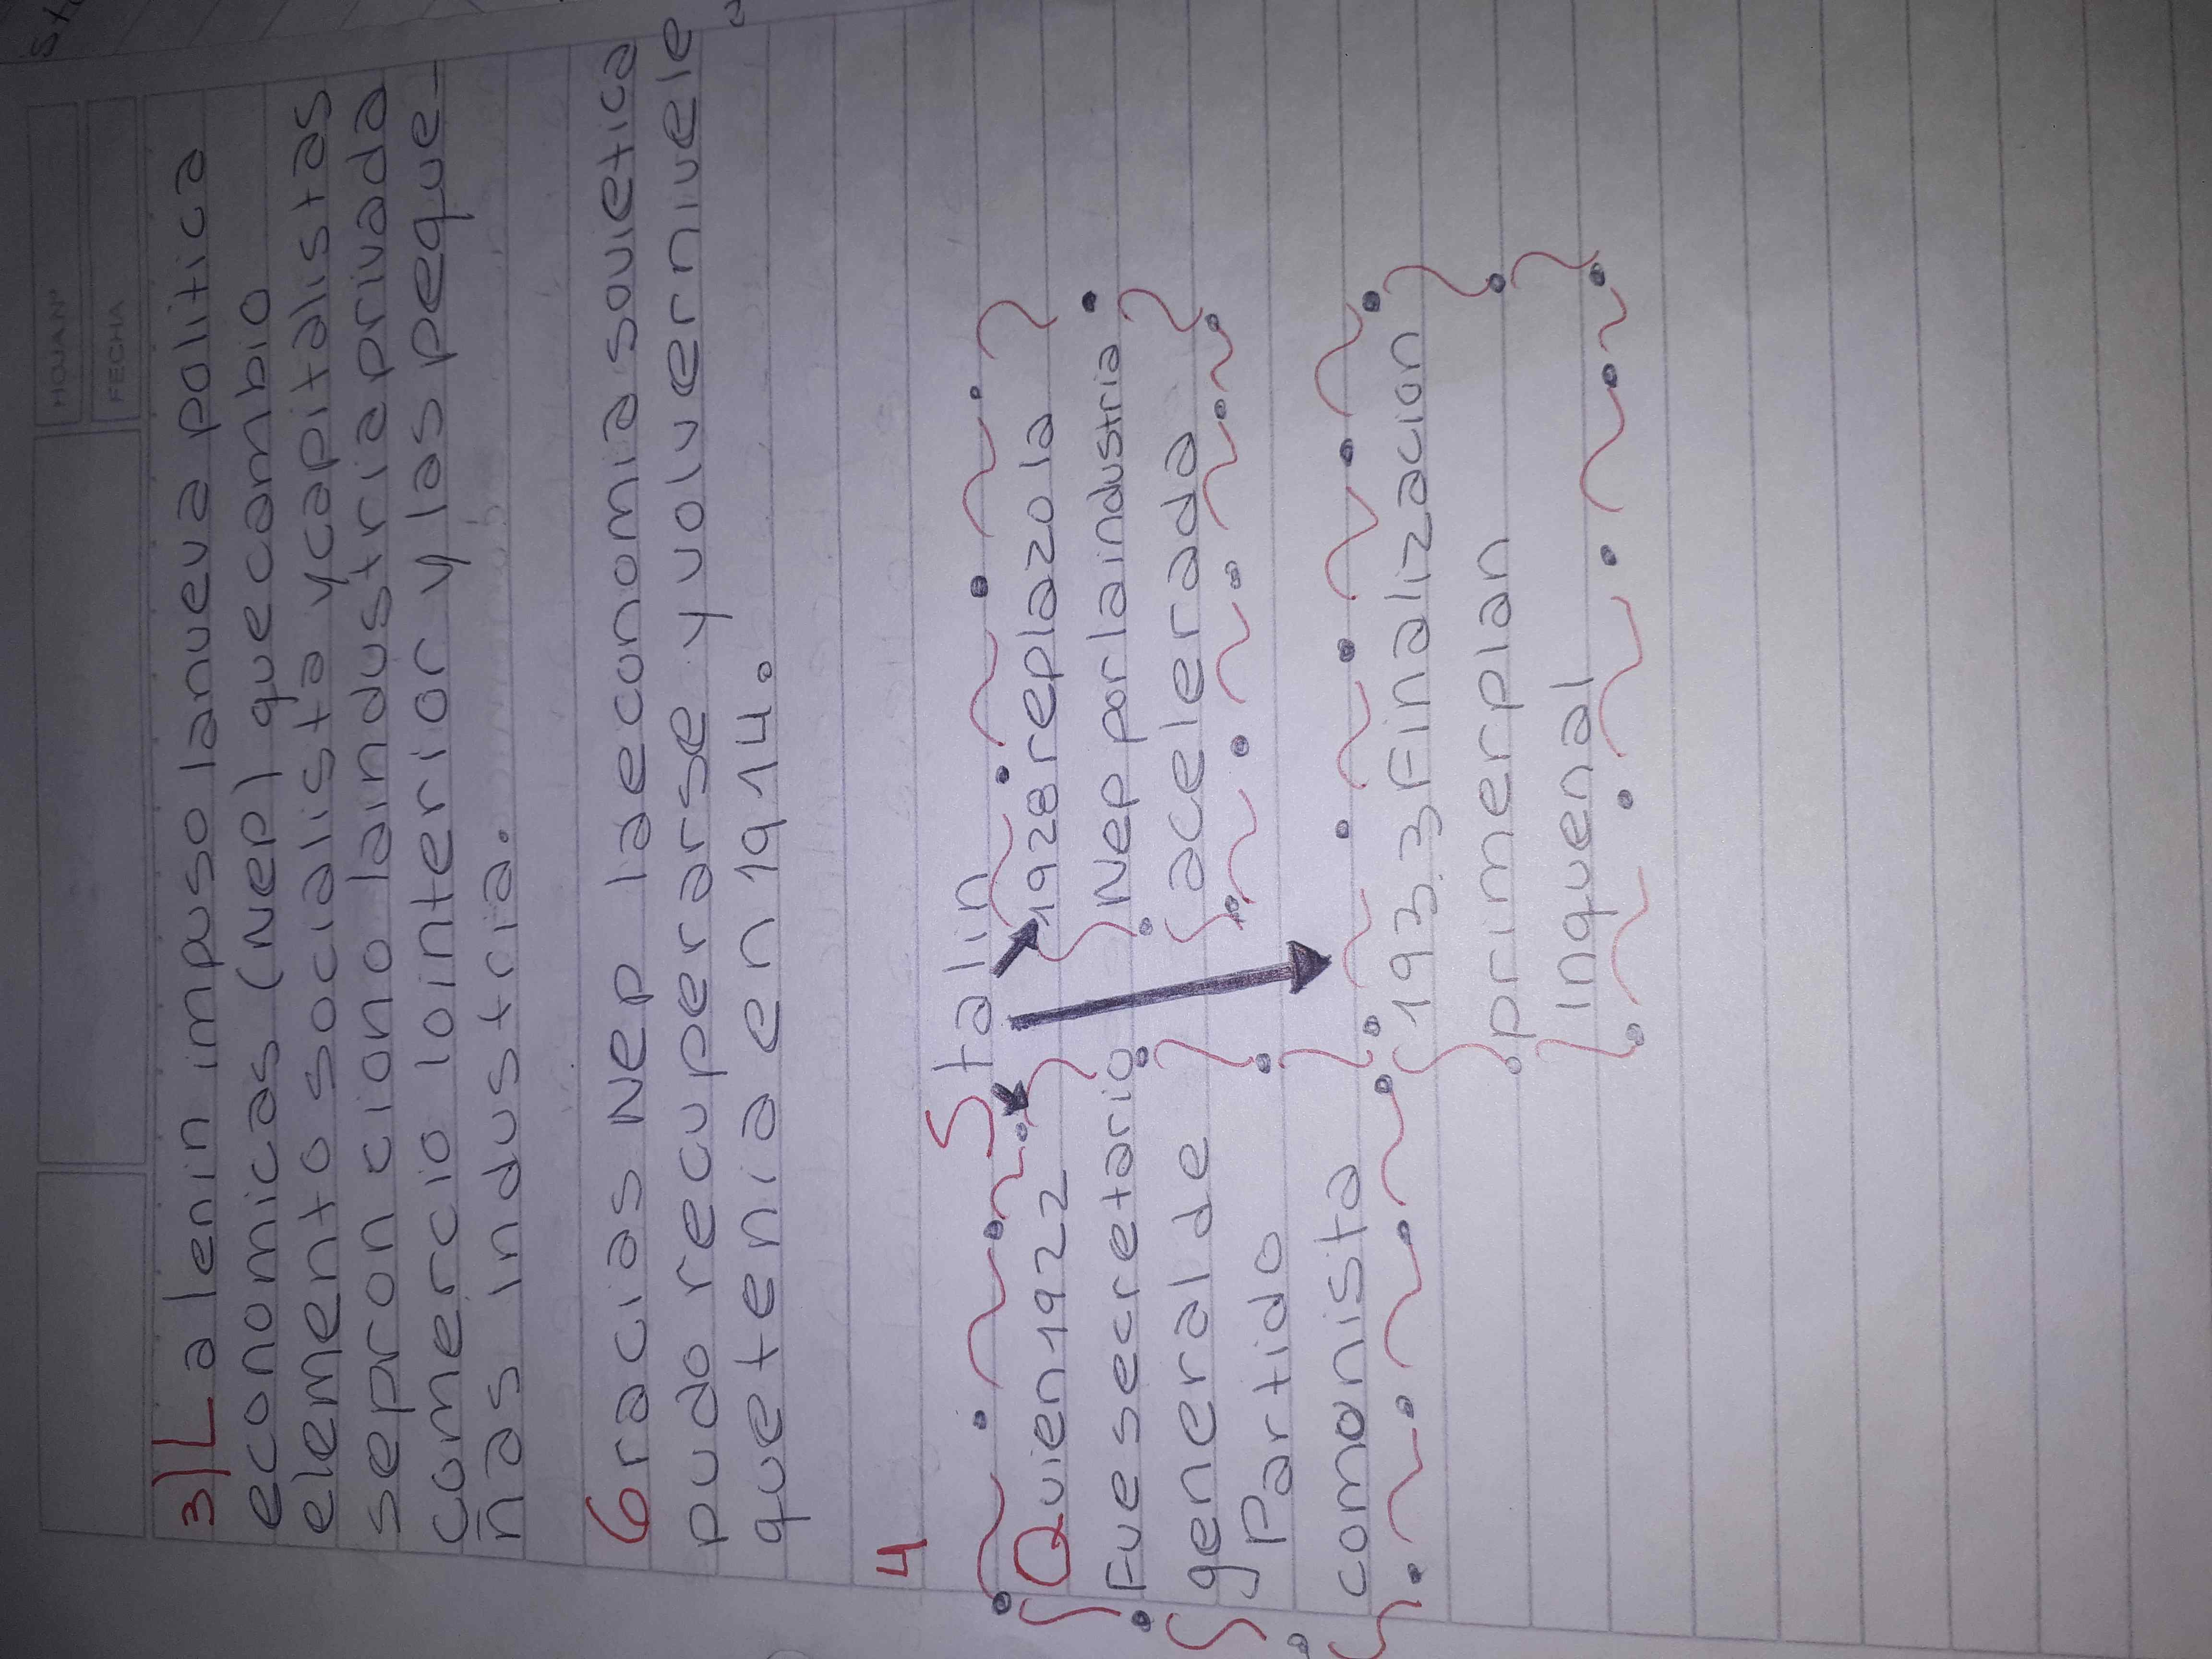 HOJA Nº
FECHA
3) La lenin impuso lanueva politica
economicas (Nep) que cambio
elemento socialista y capitalistas
sepron ciono laindustria privada
comercio lointerior y las peque-
ñas industria.
Gracias Nep laeconomia sovietica
pudo recuperarse y volvernivele
quetenia en 1914.
4
Stalin
Quien 1922
Fue secretario
general de
Partido
comonista
1928 replazo la
Nep por laindustria
acelerada
1933 Finalizacion
primerplan
inquenal